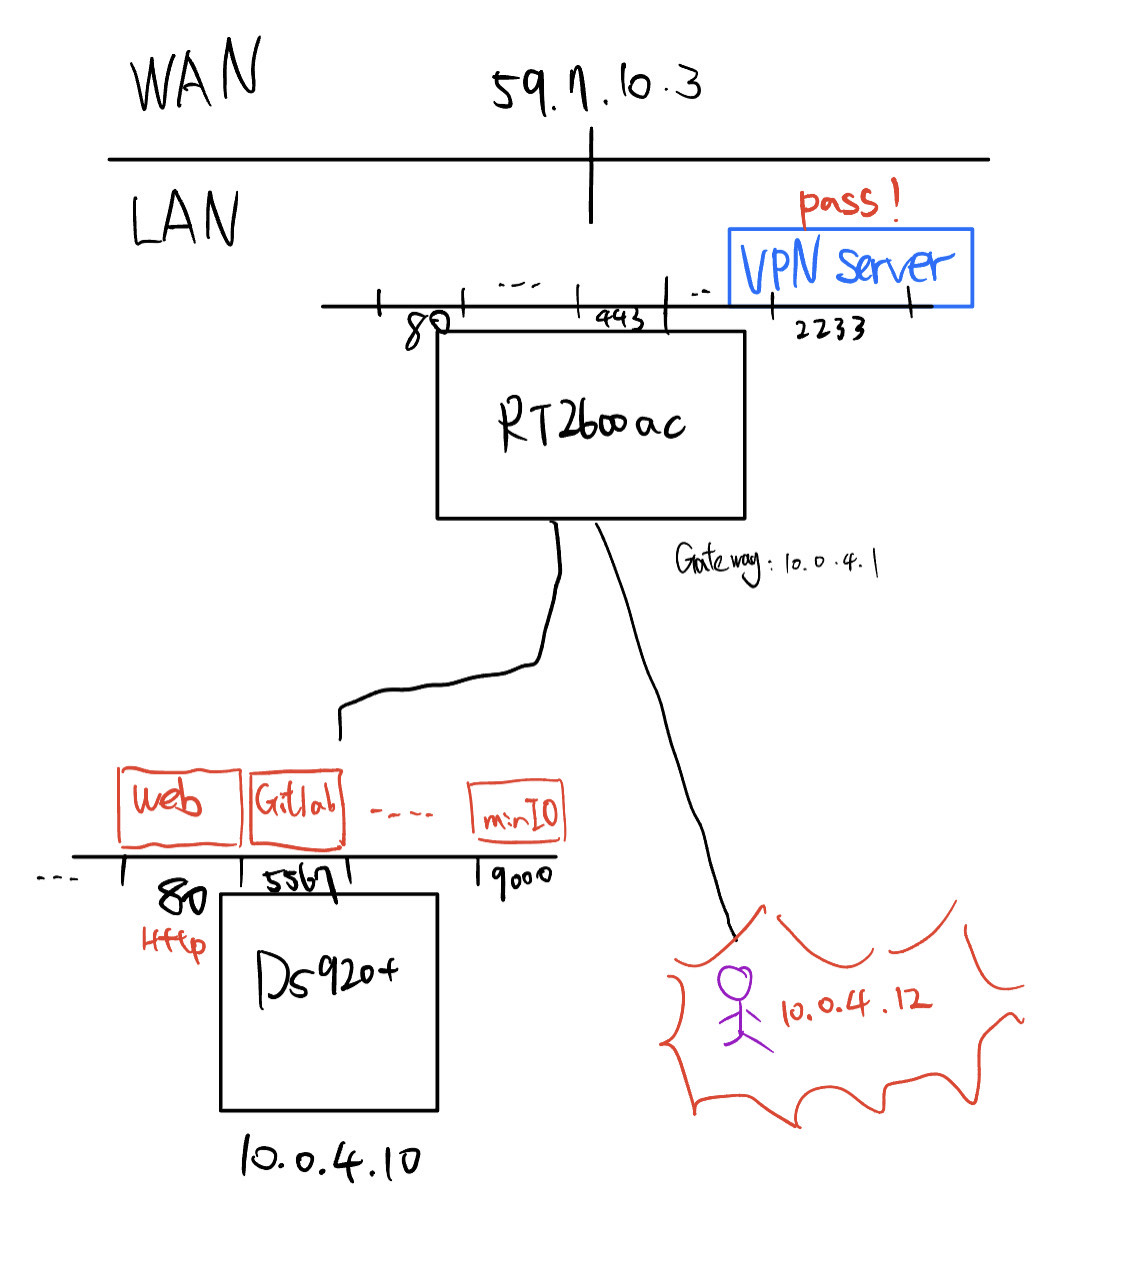 WAN
59.7.10.3
LAN
pass!
VPN server
80
443
2233
RT2600ac
Gateway: 10.0.4.1
web
Gitlab
minIO
80
5567
9000
Http
Ds920+
10.0.4.12
10.0.4.10